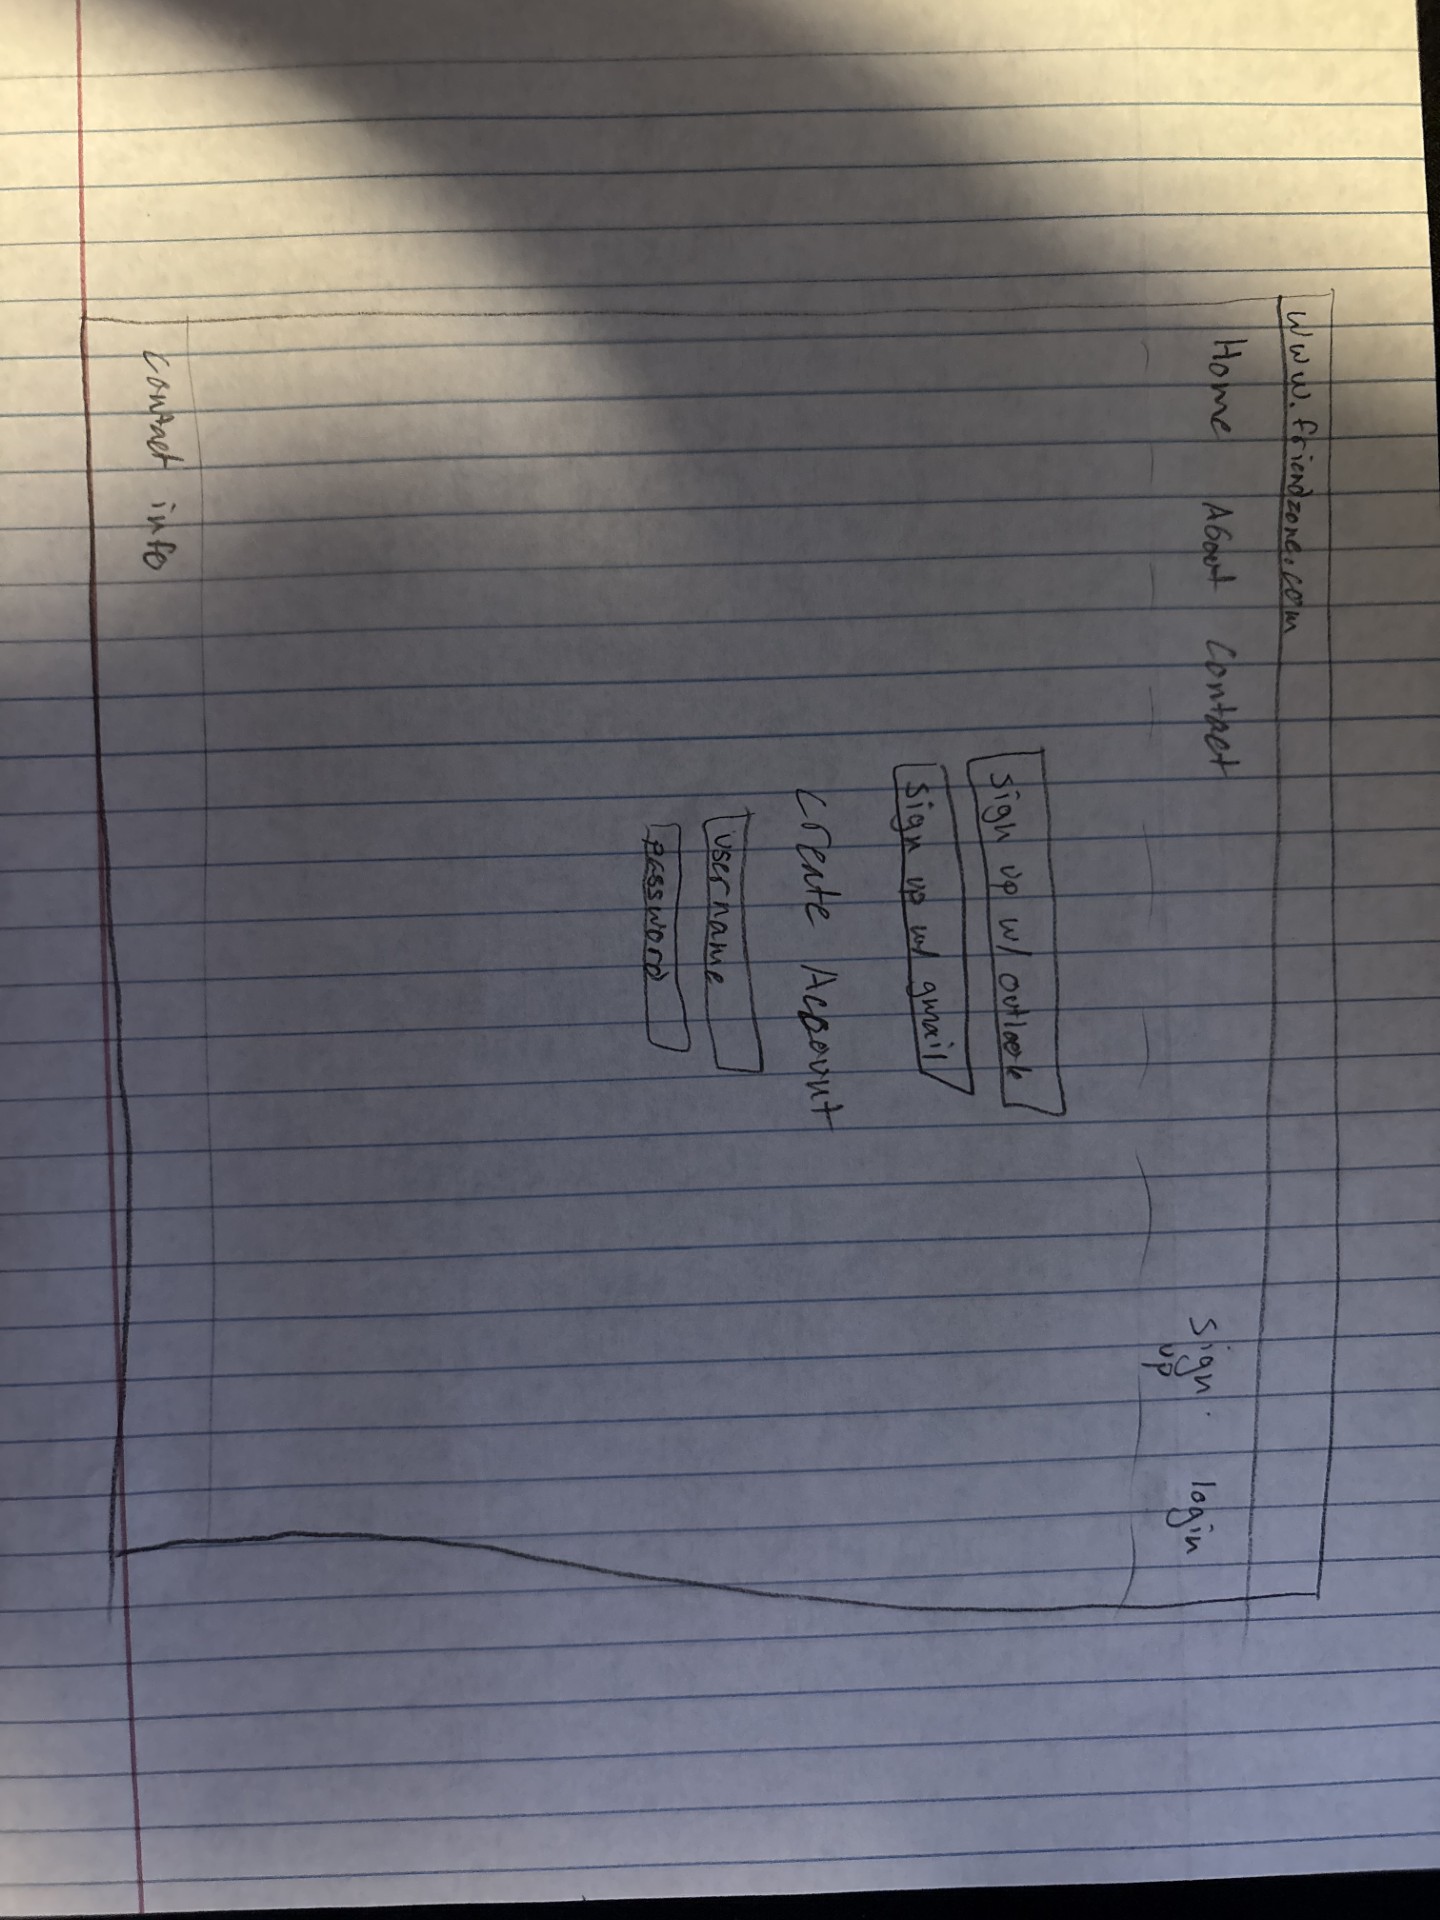 www.friendzone.com
Home About Contact Sign up login
Sign up w/ outlook
Sign up w/ gmail
Create Account
username
password
contact info